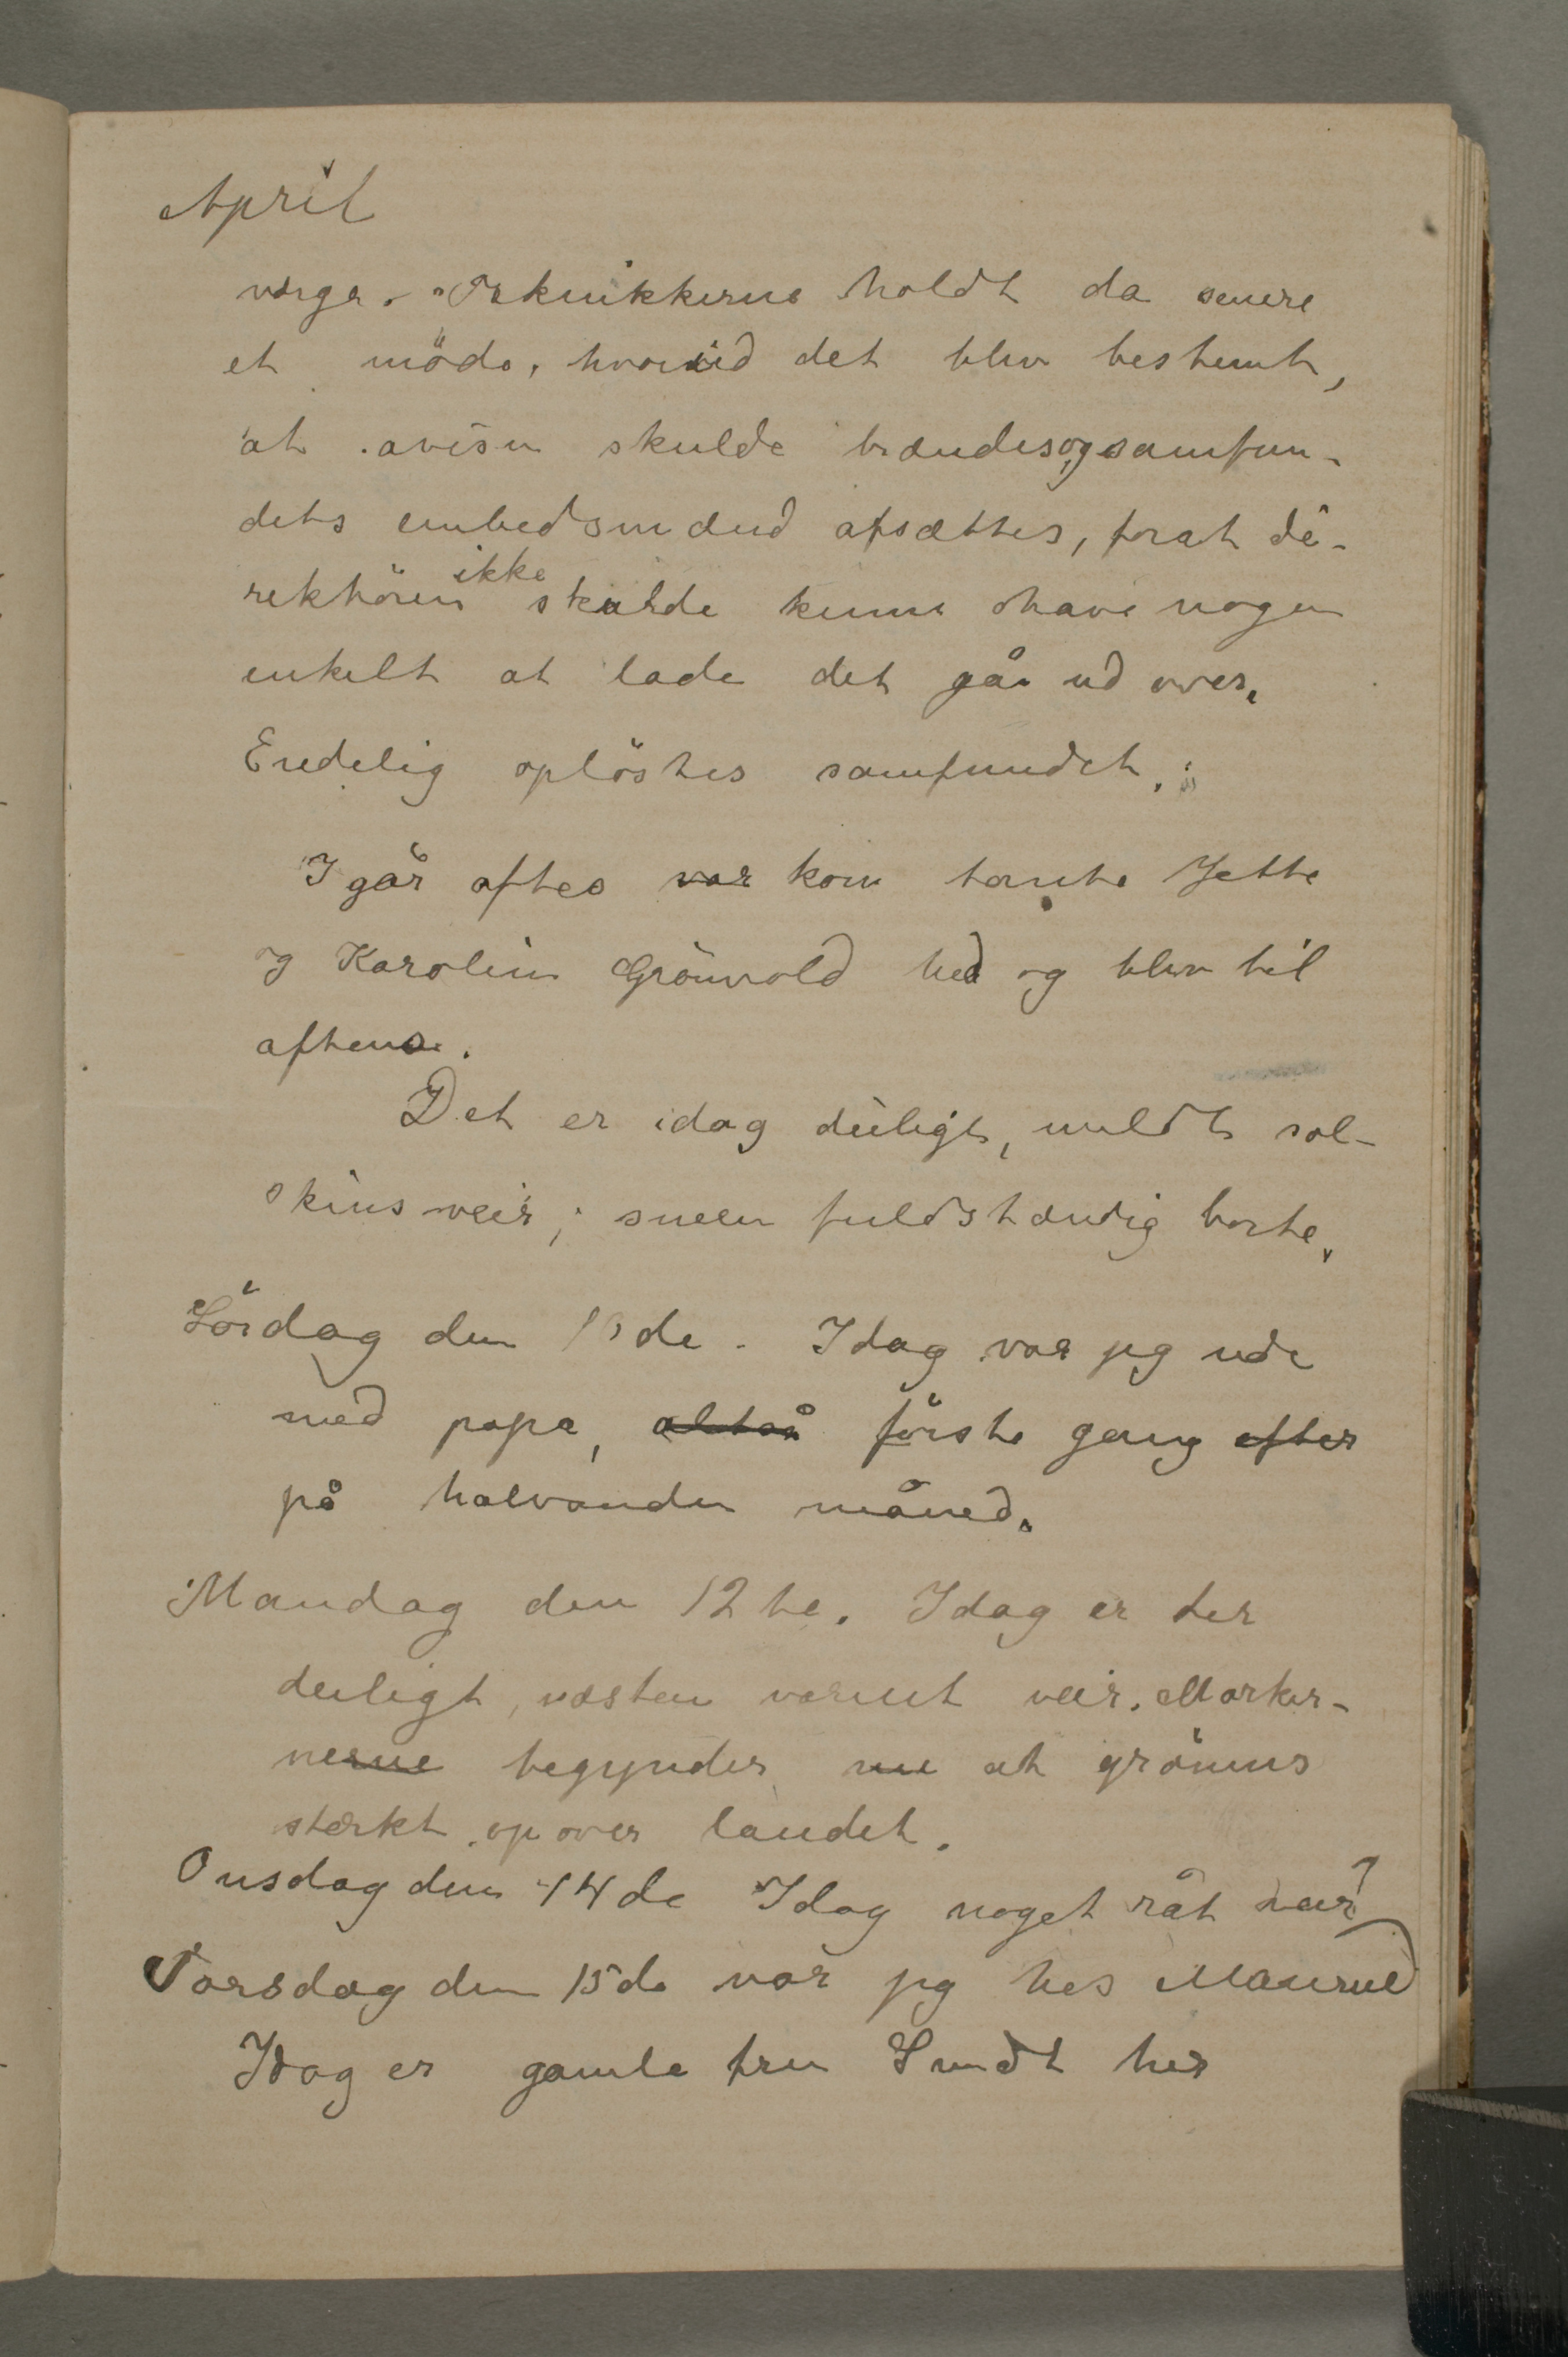 April
værge. Teknikkerne holdt da senere
et möde, hvorved det blev bestemt,
at avisen skulde brændes og samfun-
dets embedsmænd afsættes, forat di-
rektören ikke skulde kunne have nogen
enkelt at lade det gå ud over.
Endelig oplöstes samfundet.
Igår aftes var kom tante Jette
og Karoline Grönvold hed og blev til
aftens.
Det er idag deiligt, mildt sol-
skinsveir; sneen fuldstændig borte.
Lördag den 10de. Idag var jeg ude
med papa, altså förste gang efter
på halvanden måned.
Mandag den 12te. Idag er der
deiligt, næsten varmt veir. Marker-
nerne begynder nu at grönnes
stærkt opover landet.
Onsdag den 14de Idag noget råt veir
Torsdag den 15de var jeg hos Maurud
Idag er gamle fru Smidt her